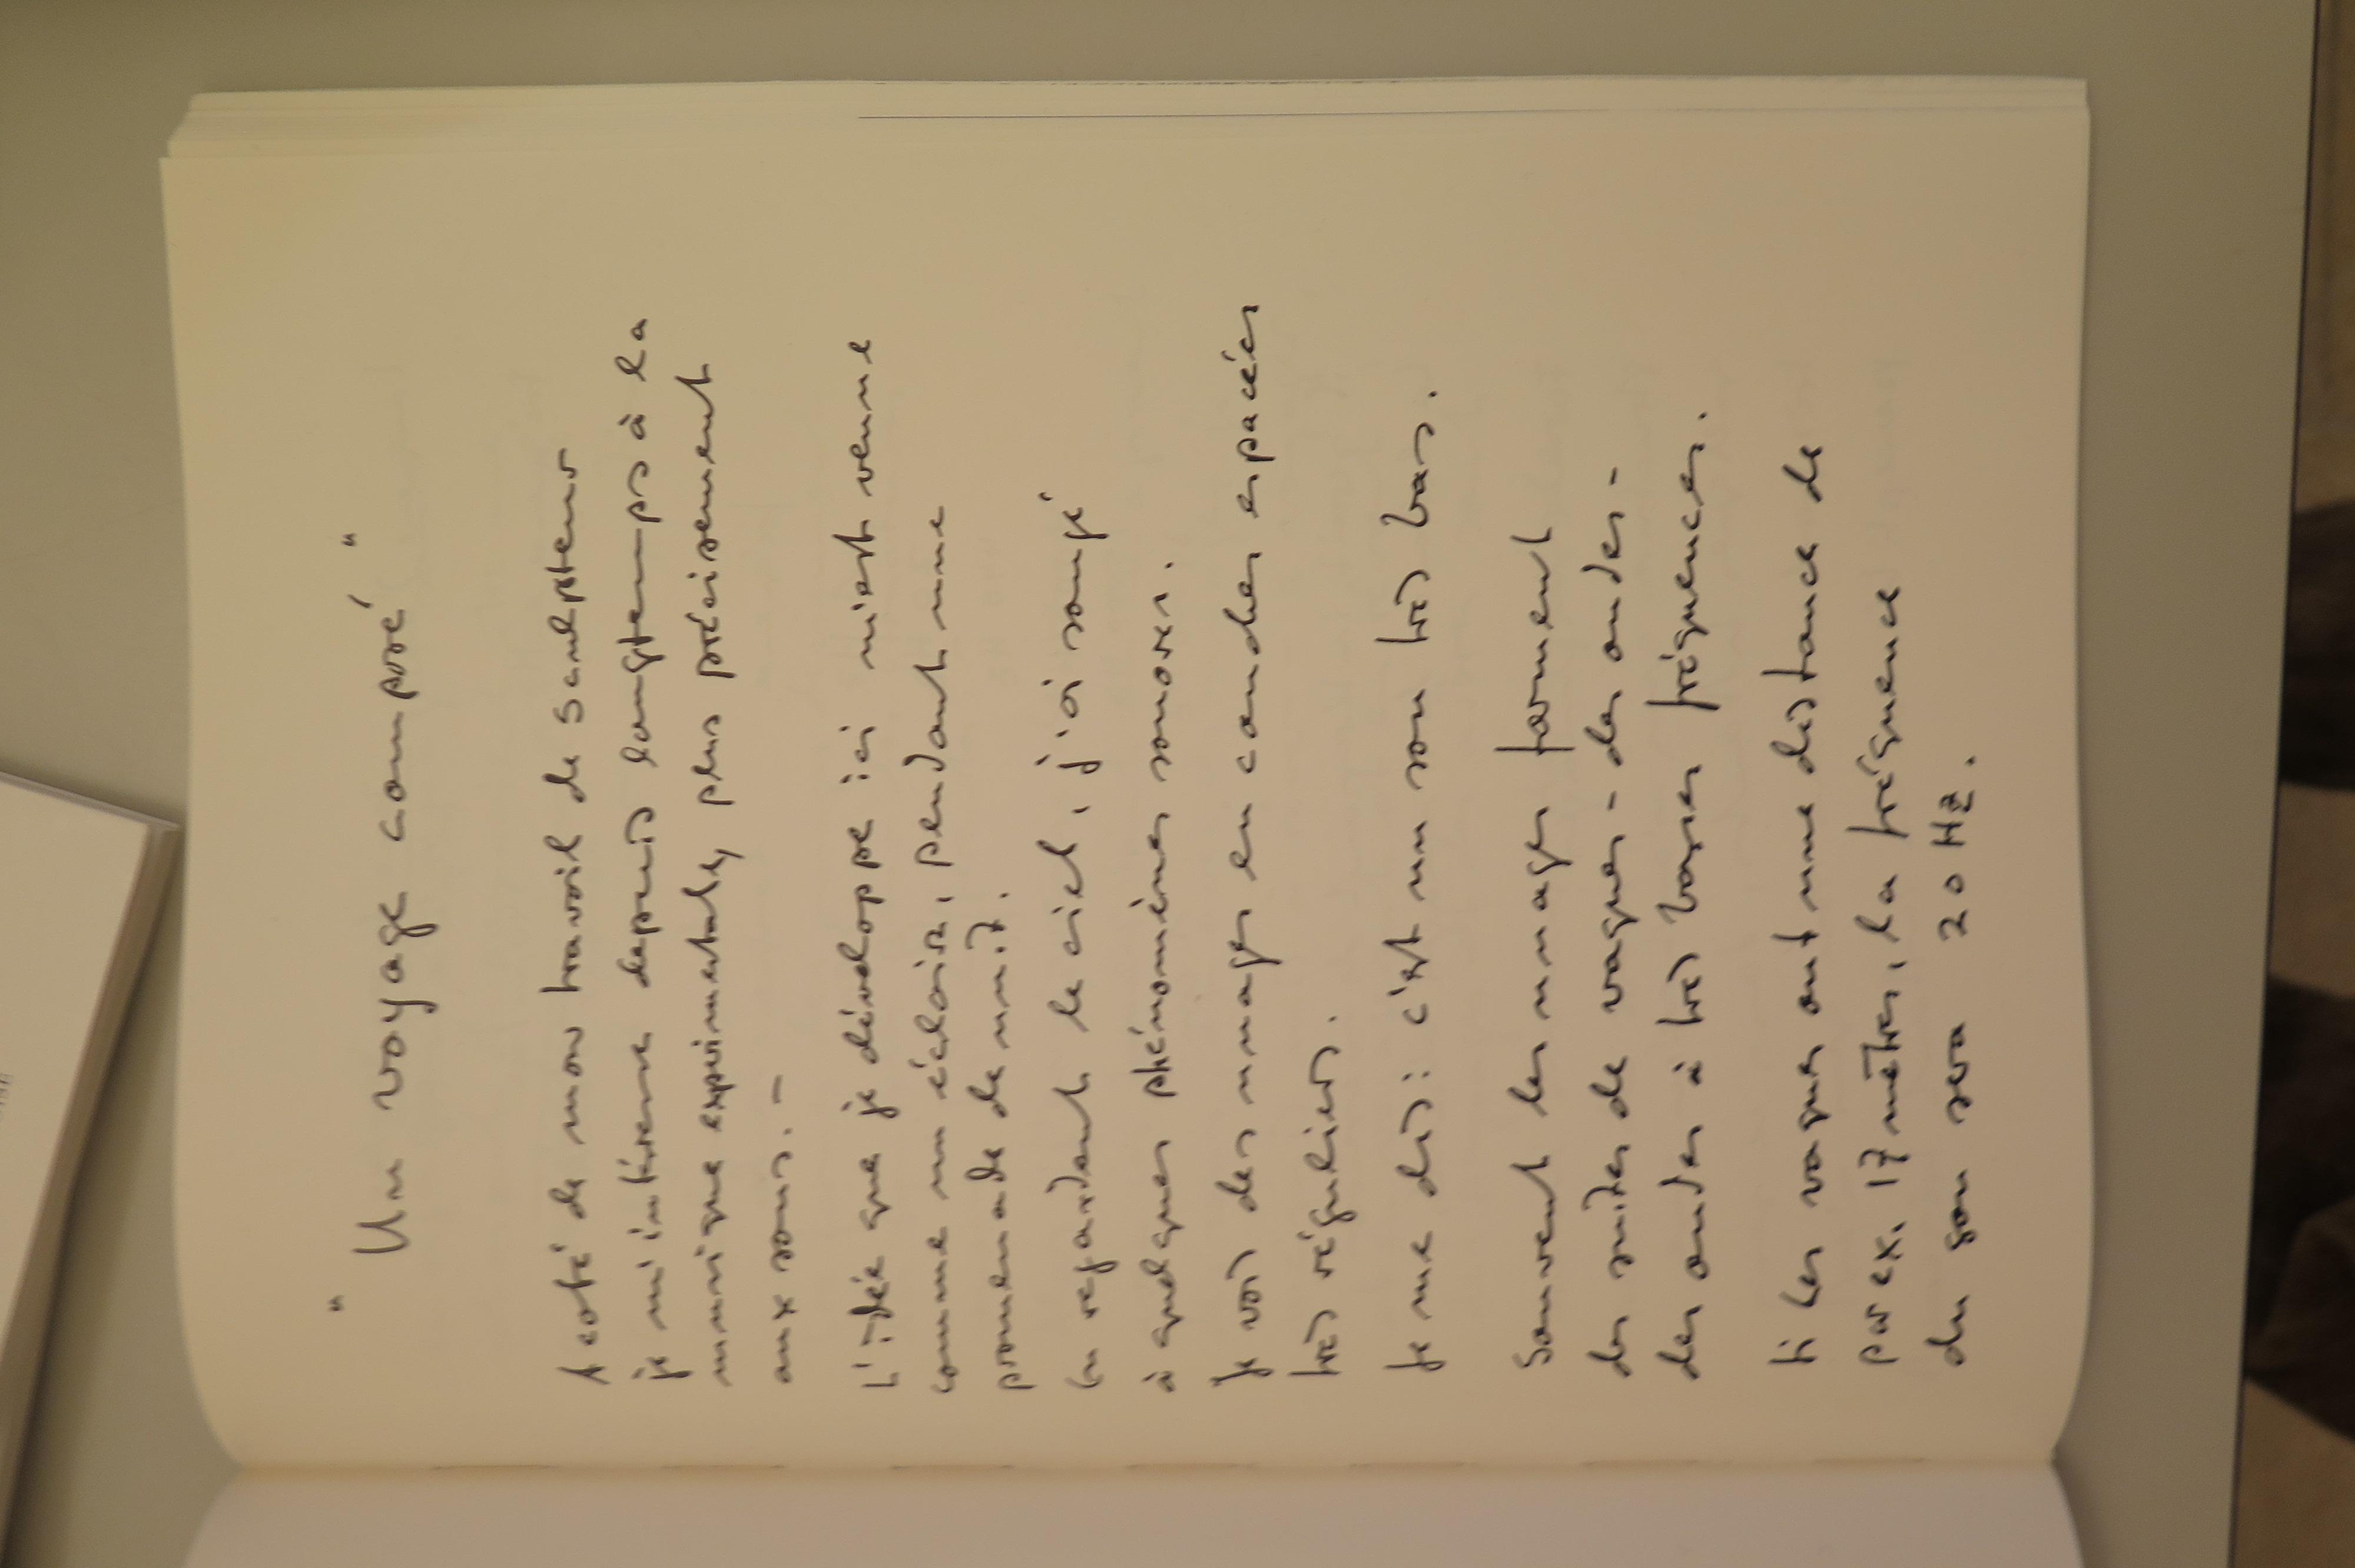 " Un voyage composé "
A coté de mon travail de sculpteur
je m'intéresse depuis longtemps à la
musique expérimentale, plus précisement
aux sons. –
L'idée que je développe ici m'est venue
comme un éclair, pendant une
promenade de nuit.
En regardant le ciel, j'ai songé
à quelques phénomènes sonores.
Je vois des nuages en couches espacées
très régulier.
Je me dis: c'est un son très bas.
Souvent les nuages forment
des suites de vagues - des ondes -
des ondes à très basses fréquences.
Si les vagues ont une distance de
par ex. 17 mètres, la fréquence
du son sera 20 Hz.